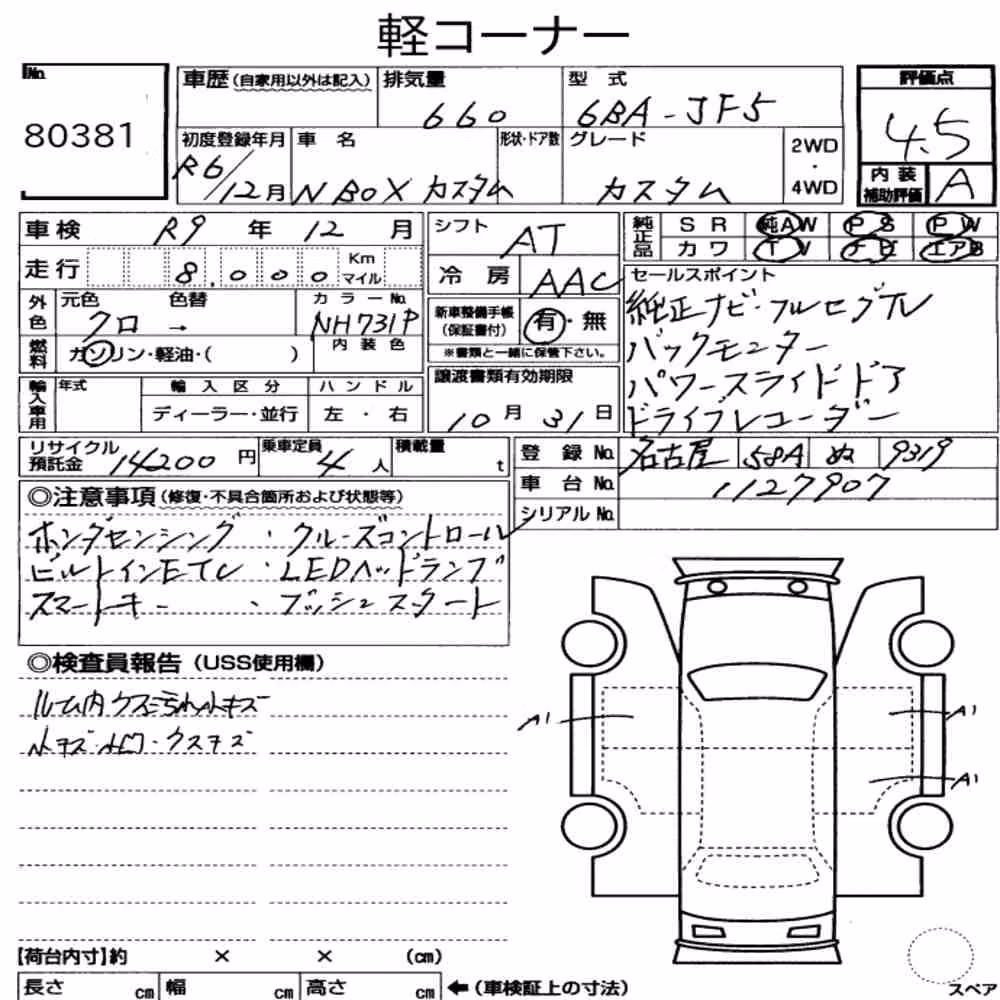 軽コーナー
No.
80381
車歴(自家用以外は記入)
排気量
660
型式
6BA-JF5
評価点
4.5
初度登録年月
R6/12月
車名
N BOX カスタム
形状・ドア数
グレード
カスタム
2WD
・
4WD
内装
補助評価
A
車検 R9年 12月
走行 8,000 Km
マイル
シフト
AT
冷房
AAC
純正品
SR 純AW PS PW
カワ TV ナビ エアB
外色
元色 色替
クロ →
カラーNo.
NH731P
燃料
ガソリン・軽油・( )
内装色
新車整備手帳
(保証書付)
有・無
※書類と一緒に保管下さい。
セールスポイント
純正ナビ・フルセグTV
バックモニター
パワースライドドア
ドライブレコーダー
輸入車用
年式
輸入区分
ハンドル
ディーラー・並行
左・右
譲渡書類有効期限
10月31日
リサイクル
預託金 14200円
乗車定員
4人
積載量
t
登録No. 名古屋 58A ぬ 9319
車台No. 1127907
シリアルNo.
◎注意事項(修復・不具合箇所および状態等)
ホンダセンシング・クルーズコントロール
ビルトインETC・LEDヘッドランプ
スマートキー・プッシュスタート
◎検査員報告(USS使用欄)
ルーム内クスミ汚れ小キズ
小キズ・小凹・クスキズ
A1
A1
A1
【荷台内寸】約 × × (cm)
長さ cm 幅 cm 高さ cm ←(車検証上の寸法)
スペア